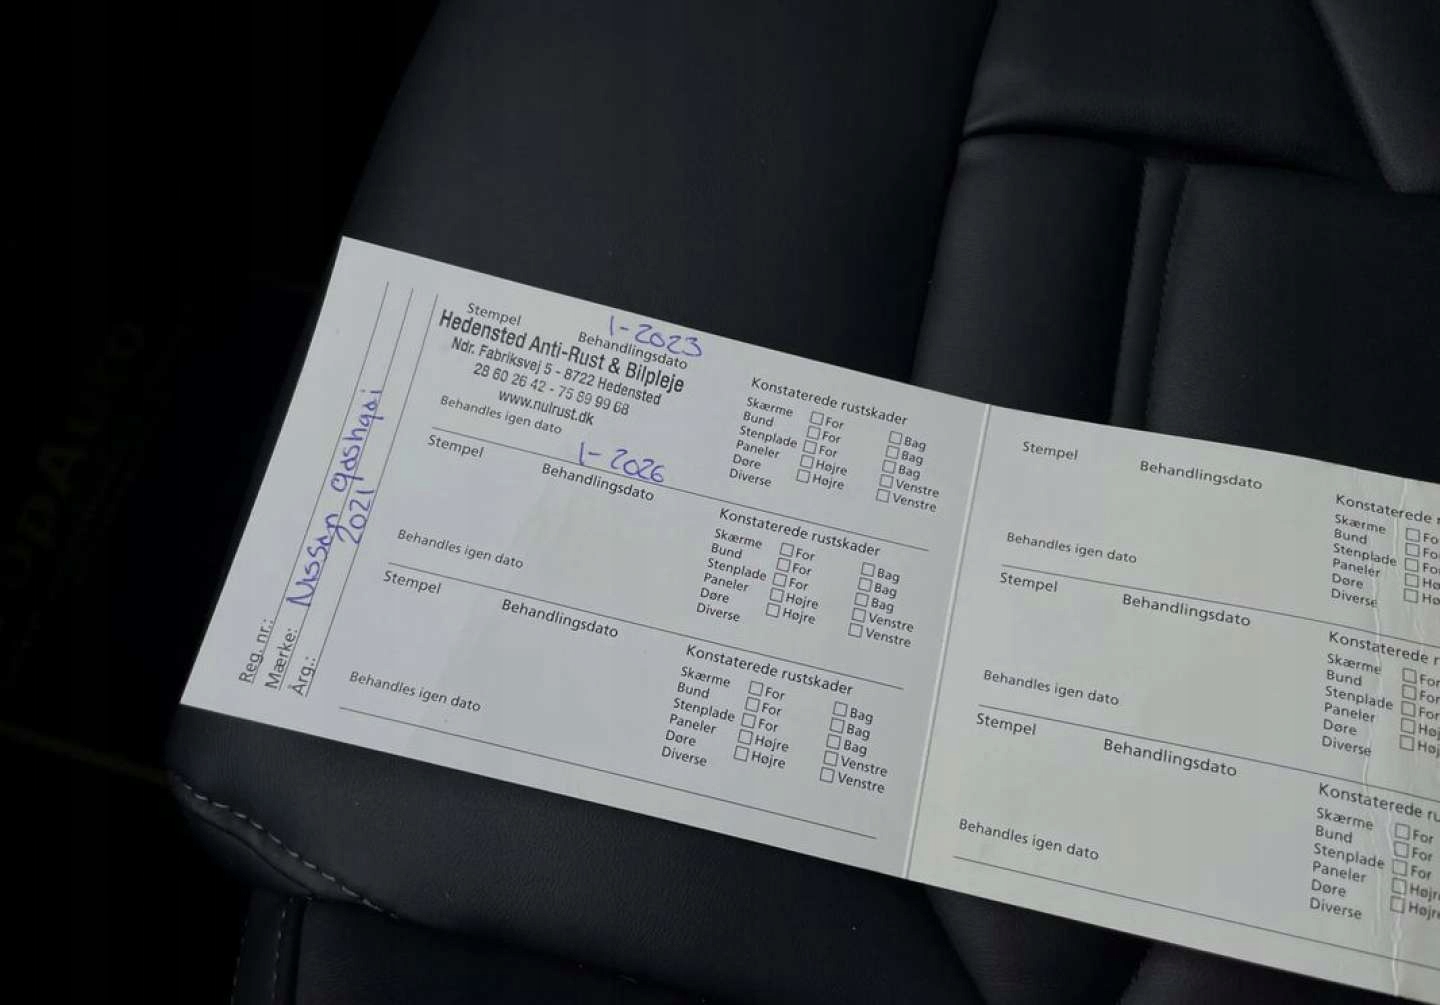 Reg. nr.:
Mærke: Nissan Qashqai
Årg.: 2021
Stempel
Behandlingsdato 1-2023
Hedensted Anti-Rust & Bilpleje
Ndr. Fabriksvej 5 - 8722 Hedensted
28 60 26 42 - 75 89 99 68
www.nulrust.dk
Behandles igen dato 1-2026
Konstaterede rustskader
Skærme For Bag
Bund For Bag
Stenplade For Bag
Paneler Højre Venstre
Døre Højre Venstre
Diverse
Stempel
Behandlingsdato
Behandles igen dato
Konstaterede rustskader
Skærme For Bag
Bund For Bag
Stenplade For Bag
Paneler Højre Venstre
Døre Højre Venstre
Diverse
Stempel
Behandlingsdato
Behandles igen dato
Konstaterede rustskader
Skærme For Bag
Bund For Bag
Stenplade For Bag
Paneler Højre Venstre
Døre Højre Venstre
Diverse
Stempel
Behandlingsdato
Behandles igen dato
Konstaterede r
Skærme Fo
Bund Fo
Stenplade Fo
Paneler Hø
Døre Hø
Diverse
Stempel
Behandlingsdato
Behandles igen dato
Konstaterede r
Skærme For
Bund For
Stenplade For
Paneler Høj
Døre Høj
Diverse
Stempel
Behandlingsdato
Behandles igen dato
Konstaterede ru
Skærme For
Bund For
Stenplade For
Paneler Højr
Døre Højr
Diverse